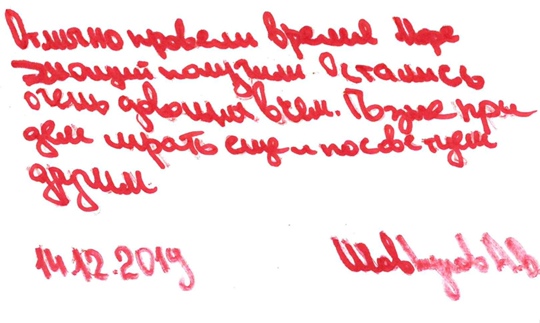 Отлично провели время Море
эмоций получили Остались
очень довольна всем. Позже при
дем играть еще и посоветуем
друзьям
14.12.2019